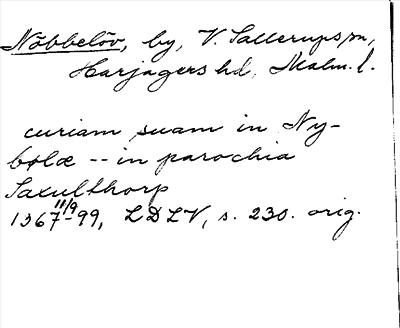 Nöbbelöv, by, V. Sallerups sn,
Harjagers hd, Malm. l.
curiam suam in Ny-
bølæ -- in parochia
Saxulthorp
1367 11/9 -99, LDLV, s. 230. orig.